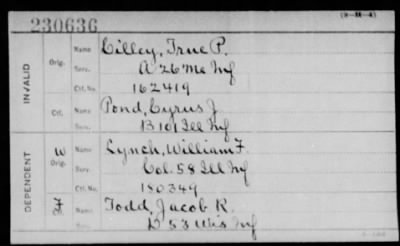 230636
(9-M-4)
INVALID
Orig.
Name Cilley, True P.
Serv. A 26 Me Inf
Ctf. No. 162419
Ctf.
Name Pond, Cyrus J
Serv. B 101 Ill Inf
DEPENDENT
W
Orig.
Name Lynch, William F.
Serv. Col. 58 Ill Inf
Ctf. No. 180349
F
Ctf.
Name Todd, Jacob R.
D 53 Wis Inf